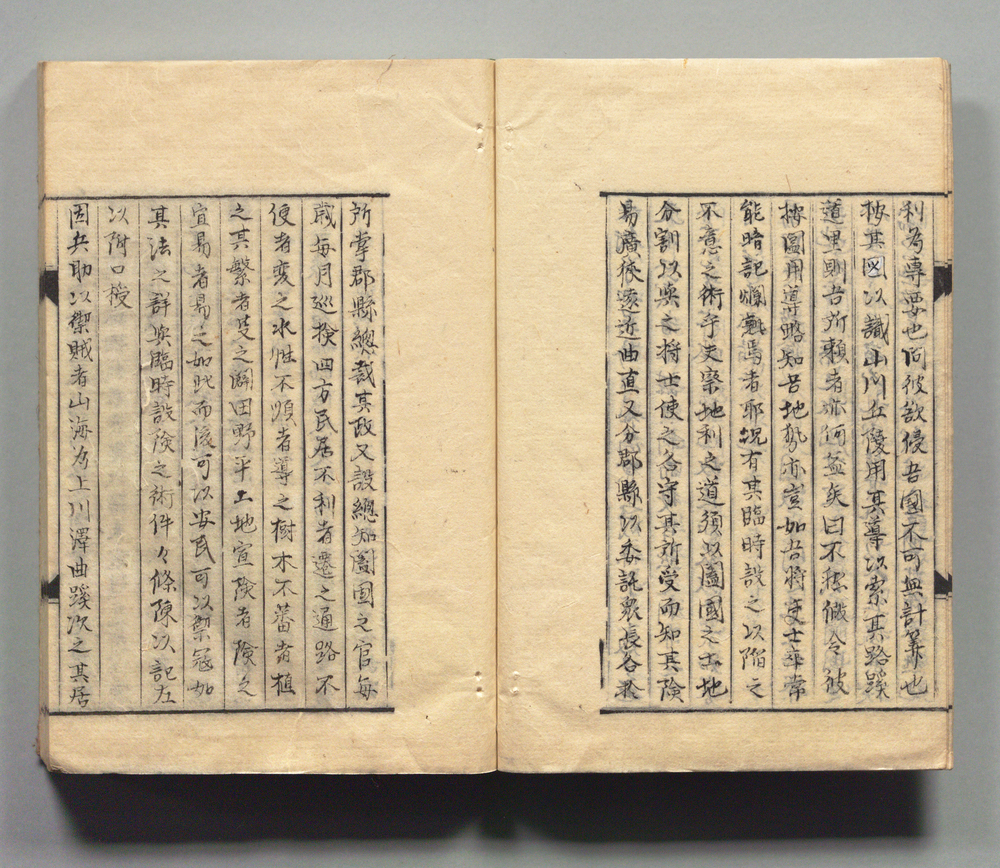 利為專要也何彼欲侵吾國不可無計筭也
按其図以識山川丘陵用其導以索其路蹊
道里則吾所賴者亦何益矣曰不然儀令彼
按圖用導略知吾地勢亦豈如吾將吏士卒常
能暗記爛熟焉者耶況有其臨時設之以陷之
不意之術乎夫察地利之道須以圖國之土地
分割以與之將士使之各守其所受而知其險
易廣狹遠近曲直又分郡縣以委託衆長各於
所掌郡縣總裁其政又設總知圖国之官每
歲每月巡撿四方民居不利者遷之通路不
便者変之水性不順者導之樹木不蕃者植
之其繁者芟之闢田野平土地宜險者險之
宜易者易之如此而後可以安民可以禦冦如
其法之詳與臨時設險之術件々條陳以記左
以附口授
因兵助以禦賊者山海為上川澤曲蹊次之其居